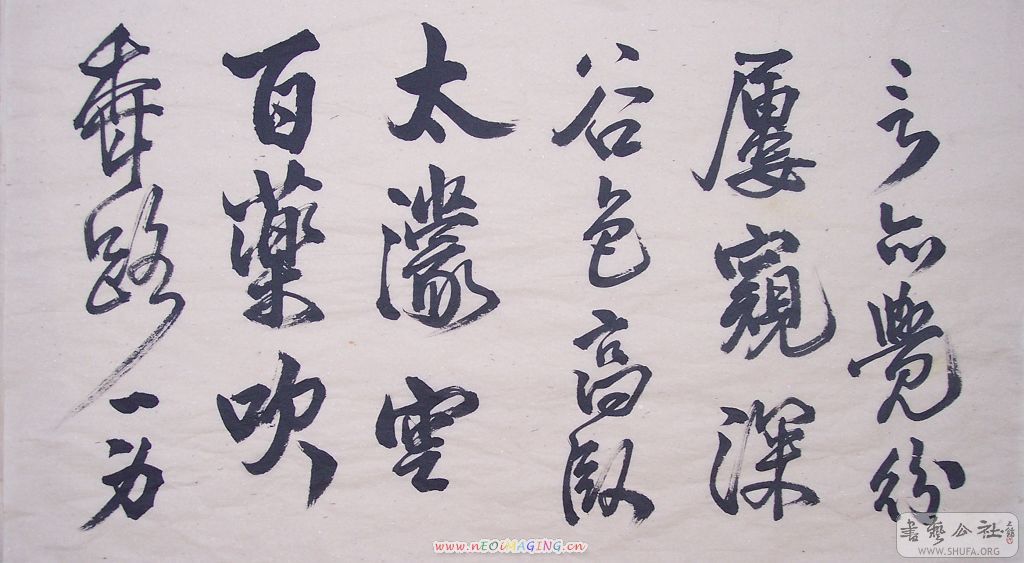 言亦覺紛
屢窺深
谷色高臥
太濛雲
百藥吹
香路一為
www.nEOiMAGING.cn
書藝公社
WWW.SHUFA.ORG